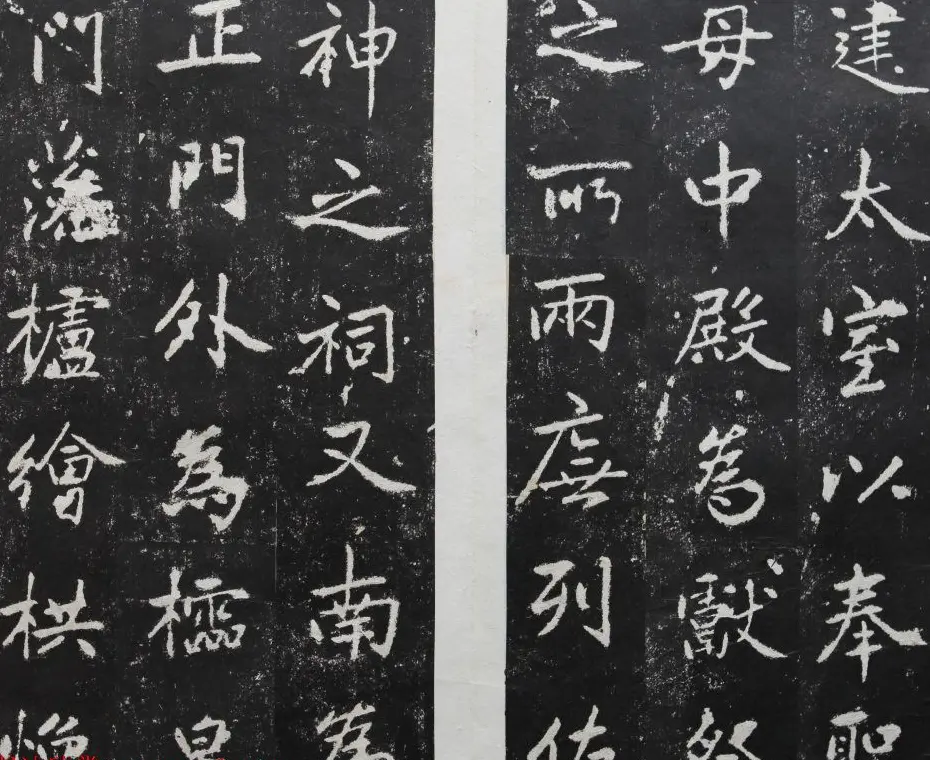 建太室以奉聖
母中殿為獻祭
之所兩廡列佐
神之祠又南為
正門外為櫺星
門櫨繪栱